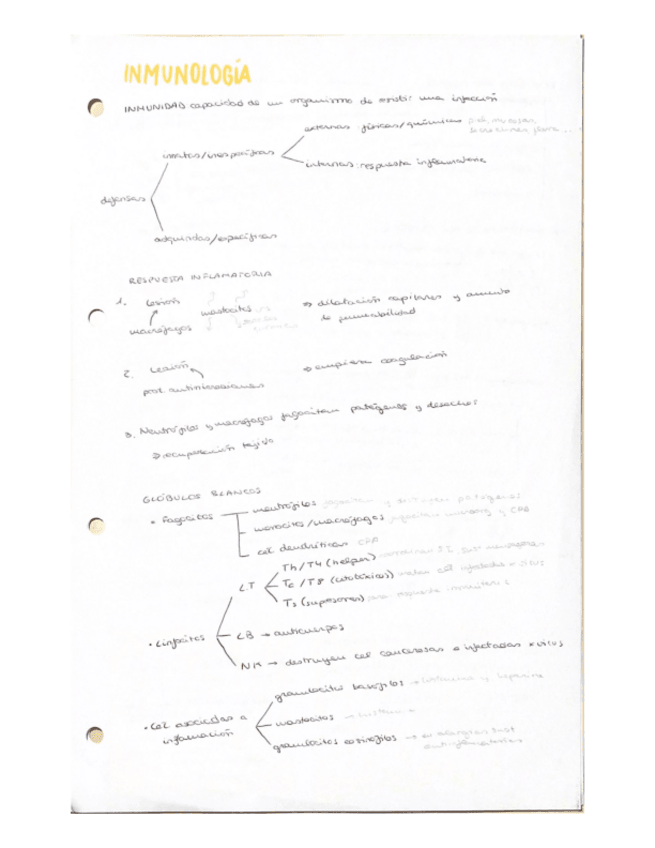 INMUNOLOGÍA
INMUNIDAD capacidad de un organismo de resistir una infección
externas físicas/químicas
innatas/inespecíficas
internas respuesta inflamatoria
defensas
adquiridas/específicas
RESPUESTA INFLAMATORIA
1. Lesión mastocitos ⇒ dilatación capilares y aumento
macrófagos de permeabilidad
2. Lesión ⇒ empieza coagulación
prot. antimicrobianas
3. Neutrófilos y macrófagos fagocitan patógenos y desechos
⇒ recuperación tejido
GLÓBULOS BLANCOS
• Fagocitos neutrófilos fagocitan y destruyen patógenos
monocitos/macrófagos fagocitan y CPA
cel dendríticas CPA
Th/T4 (helper)
L.T Tc/T8 (citotóxicos) matan cel infectadas x virus
Ts (supresores) para respuesta inmunitaria
• Linfocitos LB → anticuerpos
NK → destruyen cel cancerosas o infectadas x virus
granulocitos basófilos → histamina y heparina
• Cel asociadas a mastocitos →
inflamación
granulocitos eosinófilos → en alergias sust
antiinflamatorias